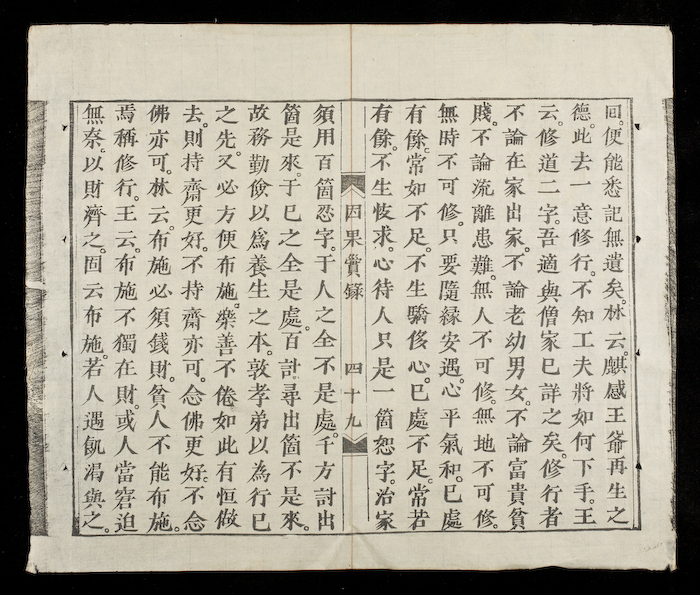 回。便能悉記無遺矣。林云。麒感王爺再生之
德。此去一意修行。不知工夫將如何下手。王
云。修道二字。吾適與僧家已詳之矣。修行者
不論在家出家。不論老幼男女。不論富貴貧
賤。不論流離患難。無人不可修。無地不可修。
無時不可修。只要隨緣安遇。心平氣和。已處
有餘。常如不足。不生驕侈心。已處不足。常若
有餘。不生忮求。心待人只是一箇恕字。治家
因果實錄 四十九
須用百箇忍字。于人之全不是處。千方討出
箇是來。于已之全是處。百計尋出箇不是來。
故務勤儉以爲養生之本。敦孝弟以為行已
之先。又必方便布施。樂善不倦如此有恒做
去。則持齋更好。不持齋亦可。念佛更好。不念
佛亦可。林云。布施必須錢財。貧人不能布施。
焉稱修行。王云。布施不獨在財。或人當窘迫
無奈。以財濟之。固云布施。若人遇飢渴與之。